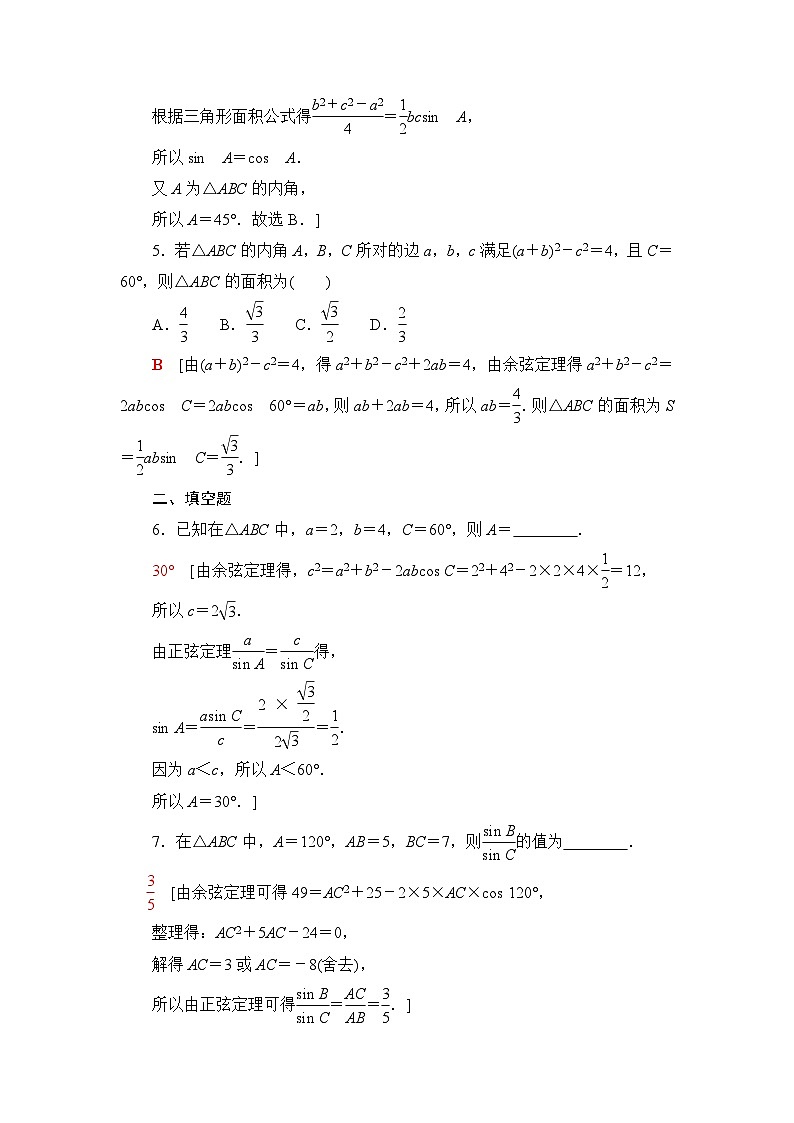 根据三角形面积公式得(b²+c²-a²)/4=1/2bcsin A,
所以 sin A=cos A.
又 A 为△ABC 的内角,
所以 A=45°.故选 B.]
5.若△ABC 的内角 A,B,C 所对的边 a,b,c 满足(a+b)²-c²=4,且 C=
60°,则△ABC 的面积为( )
A.4/3 B.√3/3 C.√3/2 D.2/3
B [由(a+b)²-c²=4,得 a²+b²-c²+2ab=4,由余弦定理得 a²+b²-c²=
2abcos C=2abcos 60°=ab,则 ab+2ab=4,所以 ab=4/3.则△ABC 的面积为 S
=1/2absin C=√3/3.]
二、填空题
6.已知在△ABC 中,a=2,b=4,C=60°,则 A=________.
30° [由余弦定理得,c²=a²+b²-2abcos C=2²+4²-2×2×4×1/2=12,
所以 c=2√3.
由正弦定理a/sin A=c/sin C得,
sin A=asin C/c=(2×√3/2)/(2√3)=1/2.
因为 a<c,所以 A<60°.
所以 A=30°.]
7.在△ABC 中,A=120°,AB=5,BC=7,则sin B/sin C的值为________.
3/5 [由余弦定理可得 49=AC²+25-2×5×AC×cos 120°,
整理得:AC²+5AC-24=0,
解得 AC=3 或 AC=-8(舍去),
所以由正弦定理可得sin B/sin C=AC/AB=3/5.]